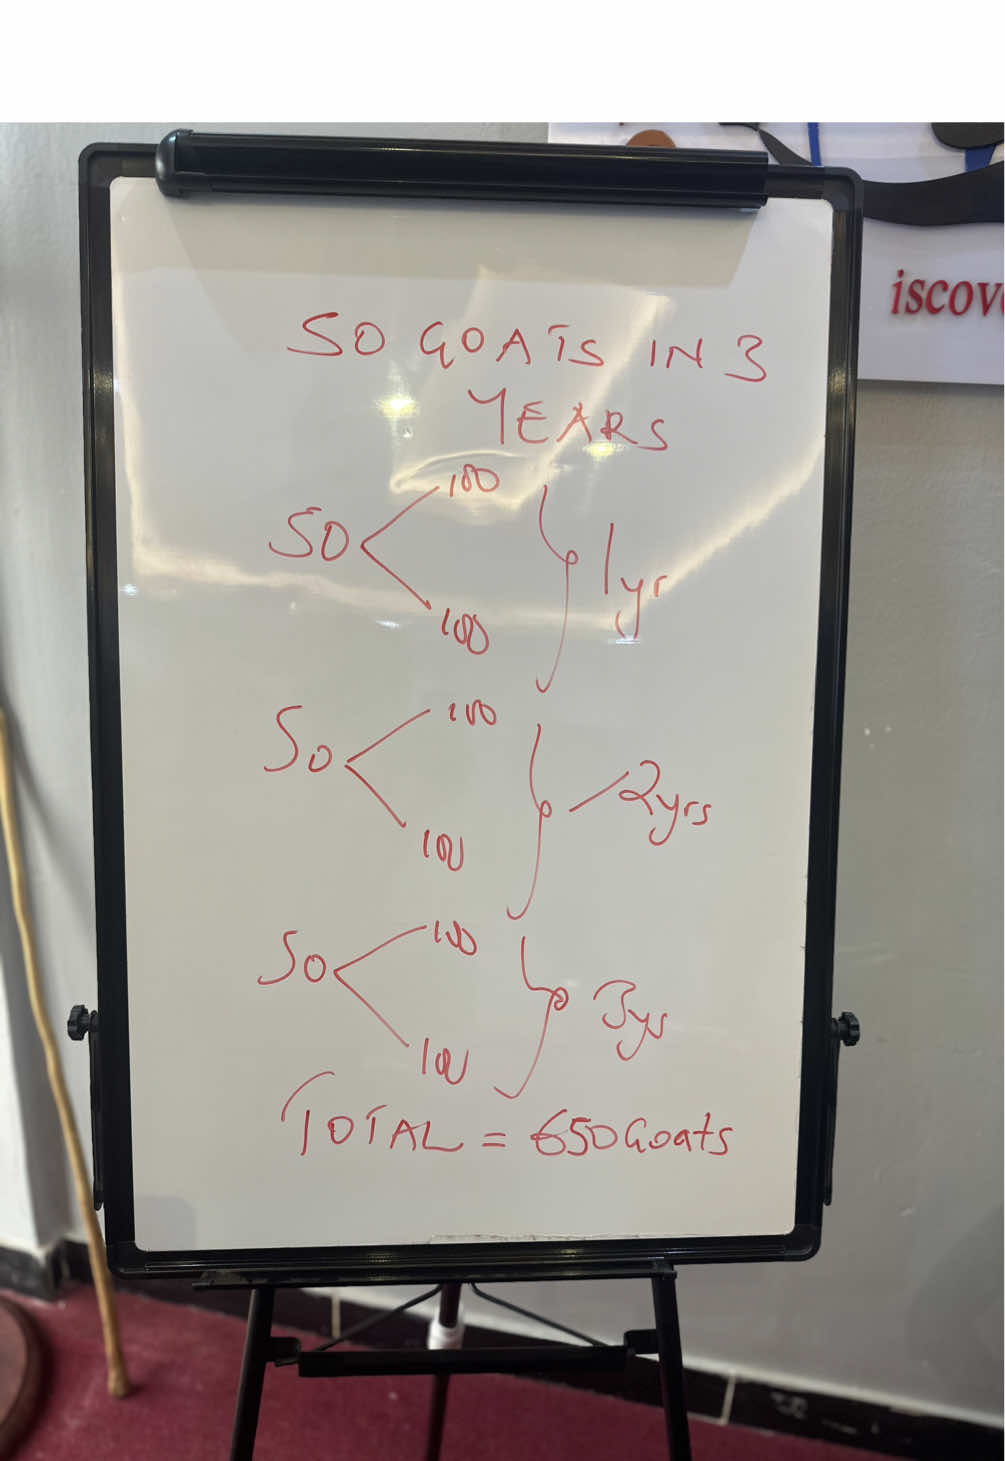 iscov
50 GOATS IN 3
YEARS
100
50
1yr
100
100
50
2yrs
100
100
50
3ys
100
TOTAL = 650 Goats